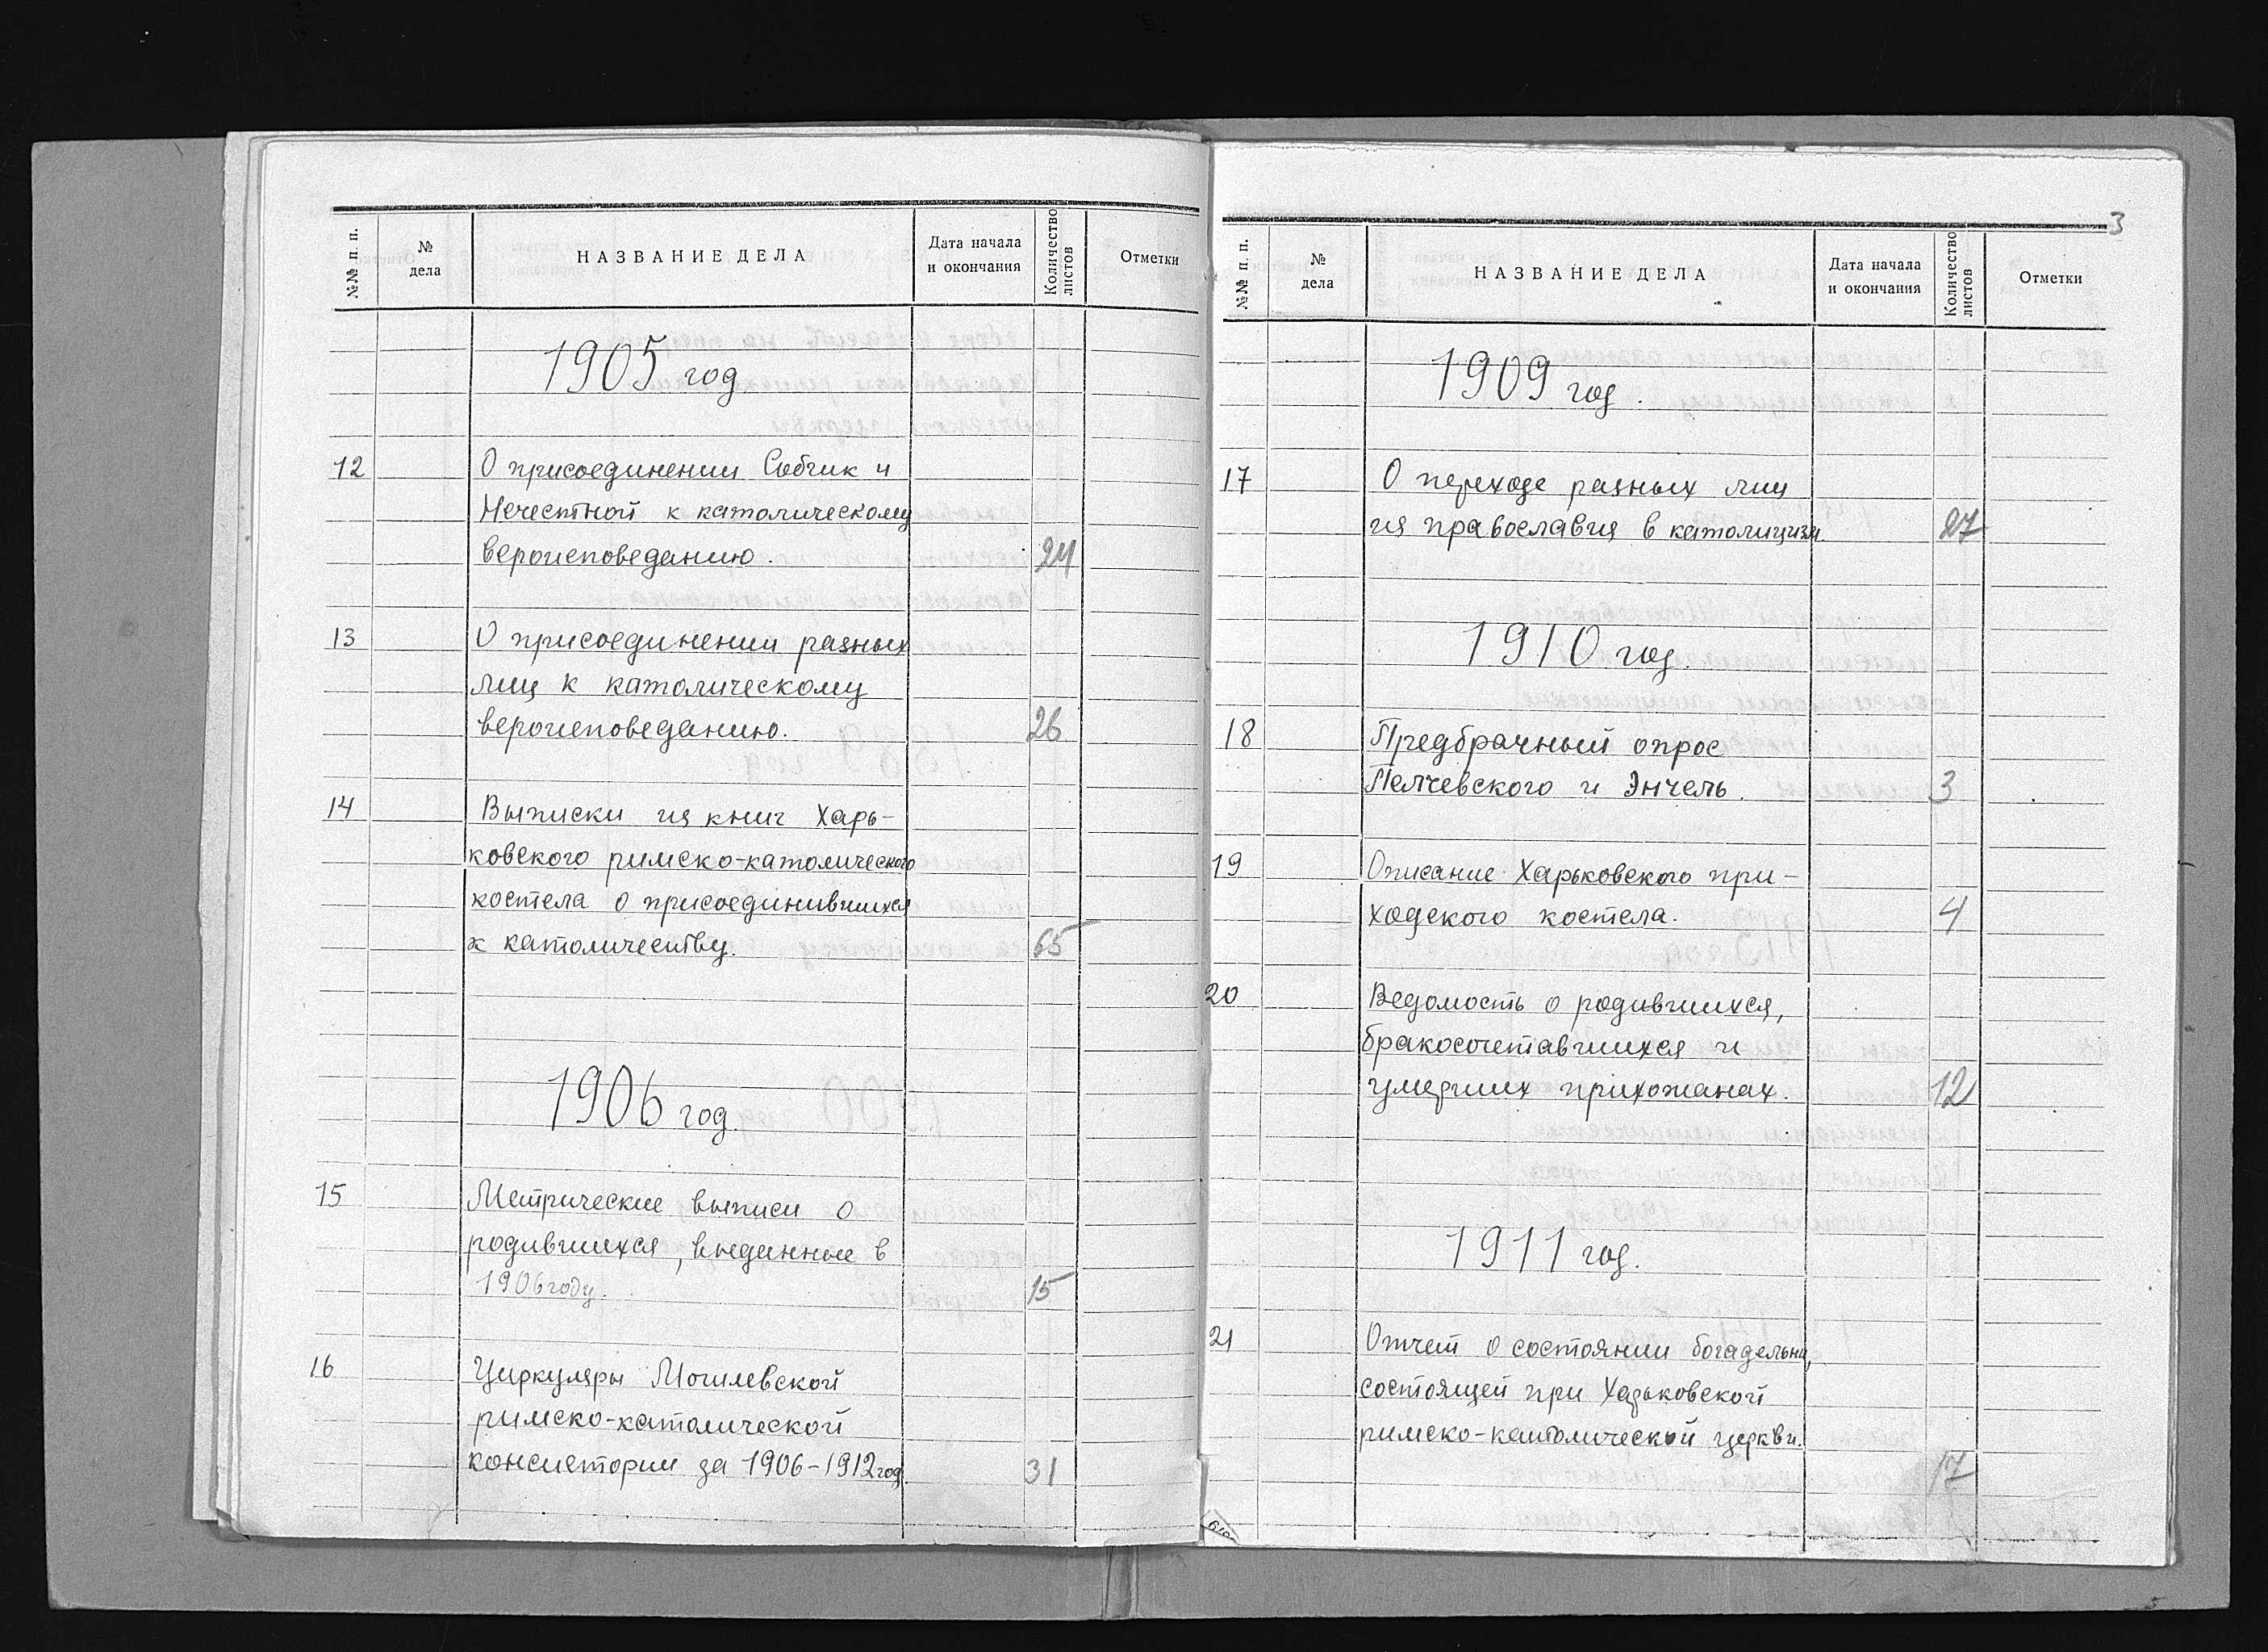 №№ п. п.
№ дела
НАЗВАНИЕ ДЕЛА
Дата начала и окончания
Количество листов
Отметки
1905 год
12 О присоединении Собчик и
Нечестной к католическому
вероисповеданию. 24
13 О присоединении разных
лиц к католическому
вероисповеданию. 26
14 Выписки из книг Харь-
ковского римско-католического
костела о присоединившихся
к католичеству. 65
1906 год.
15 Метрические выписи о
родившихся, выданные в
1906 году. 15
16 Циркуляры Могилевской
римско-католической
консистории за 1906-1912 год. 31
3
№№ п. п.
№ дела
НАЗВАНИЕ ДЕЛА
Дата начала и окончания
Количество листов
Отметки
1909 год.
17 О переходе разных лиц
из православия в католицизм. 27
1910 год.
18 Предбрачный опрос
Пелчевского и Энчель. 3
19 Описание Харьковского при-
ходского костела. 4
20 Ведомость о родившихся,
бракосочетавшихся и
умерших прихожанах. 12
1911 год.
21 Отчет о состоянии богадельни,
состоящей при Харьковской
римско-католической церкви.
17